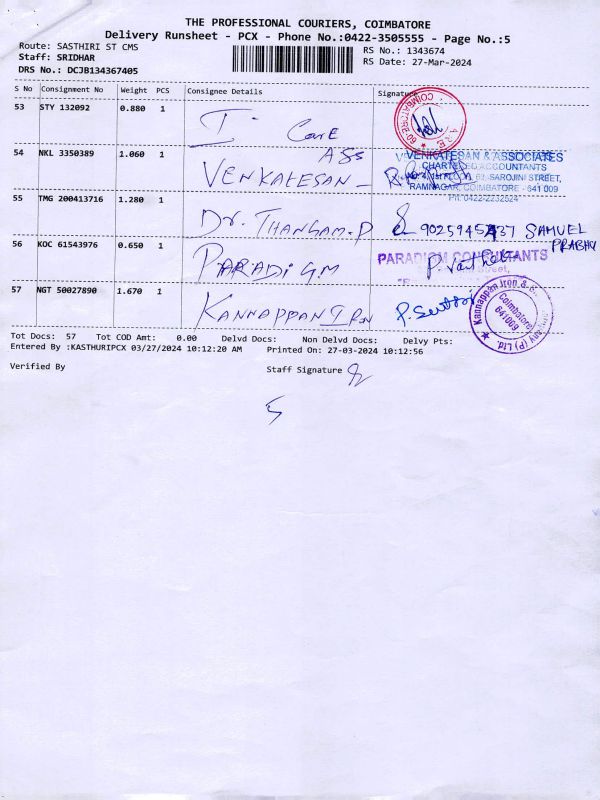 THE PROFESSIONAL COURIERS, COIMBATORE
Delivery Runsheet - PCX - Phone No.:0422-3505555 - Page No.:5
Route: SASTHIRI ST CMS
RS No.: 1343674
Staff: SRIDHAR
RS Date: 27-Mar-2024
DRS No.: DCJB134367405
S No Consignment No Weight PCS Consignee Details Signature
53 STY 132092 0.880 1 I Care
COIMBATORE
54 NKL 3350389 1.060 1 VENKATESAN ASS
VENKATESAN & ASSOCIATES
CHARTERED ACCOUNTANTS
SAROJINI STREET,
RAMNAGAR, COIMBATORE - 641 009
PH: 0422-2232524
55 TMG 200413716 1.280 1 Dr. THANGAM.P
SAMUEL
PRABHU
56 KOC 61543976 0.650 1 PARADIGM
PARADIGM CONSULTANTS
57 NGT 50027890 1.670 1 KANNAPPAN IRON
Kannappan Iron &
Coimbatore
641009
(P) Ltd.
Tot Docs: 57 Tot COD Amt: 0.00 Delvd Docs: Non Delvd Docs: Delvy Pts:
Entered By :KASTHURIPCX 03/27/2024 10:12:20 AM Printed On: 27-03-2024 10:12:56
Verified By Staff Signature
5